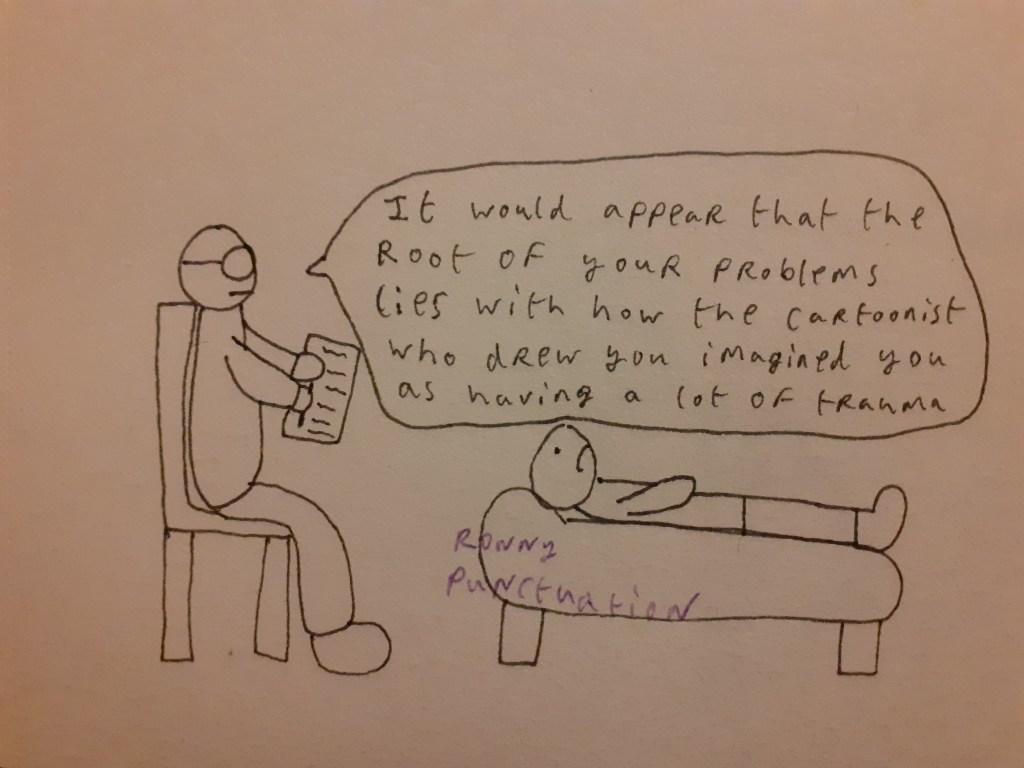 It would appear that the
root of your problems
lies with how the cartoonist
who drew you imagined you
as having a lot of trauma
Ronny
Punctuation